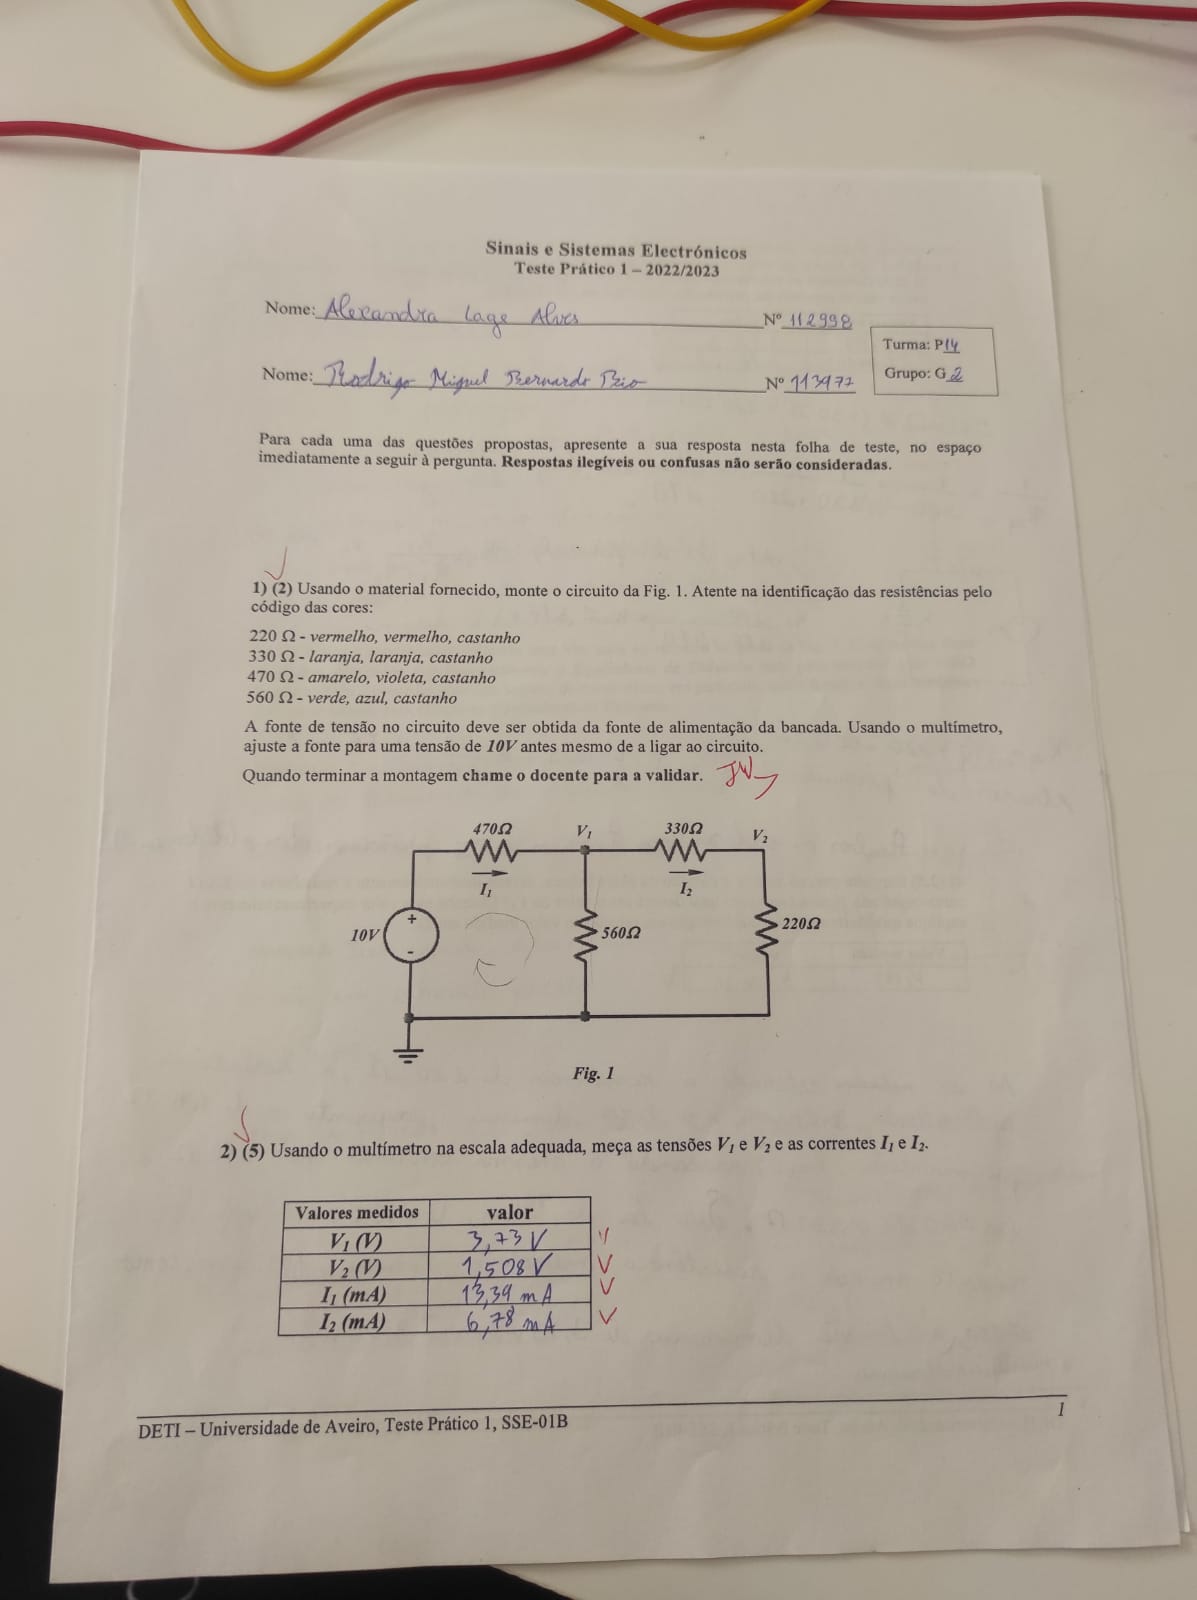 Sinais e Sistemas Electrónicos
Teste Prático 1 – 2022/2023
Nome: Alexandra Lage Alves Nº 112998
Turma: P14
Nome: Rodrigo Miguel Bernardo Nº 113977
Grupo: G 2
Para cada uma das questões propostas, apresente a sua resposta nesta folha de teste, no espaço
imediatamente a seguir à pergunta. Respostas ilegíveis ou confusas não serão consideradas.
1) (2) Usando o material fornecido, monte o circuito da Fig. 1. Atente na identificação das resistências pelo
código das cores:
220 Ω - vermelho, vermelho, castanho
330 Ω - laranja, laranja, castanho
470 Ω - amarelo, violeta, castanho
560 Ω - verde, azul, castanho
A fonte de tensão no circuito deve ser obtida da fonte de alimentação da bancada. Usando o multímetro,
ajuste a fonte para uma tensão de 10V antes mesmo de a ligar ao circuito.
Quando terminar a montagem chame o docente para a validar.
470Ω V1 330Ω V2
I1 I2
10V + - 560Ω 220Ω
Fig. 1
2) (5) Usando o multímetro na escala adequada, meça as tensões V1 e V2 e as correntes I1 e I2.
Valores medidos valor
V1 (V) 3,73 V
V2 (V) 1,508 V
I1 (mA) 13,39 mA
I2 (mA) 6,78 mA
DETI – Universidade de Aveiro, Teste Prático 1, SSE-01B 1